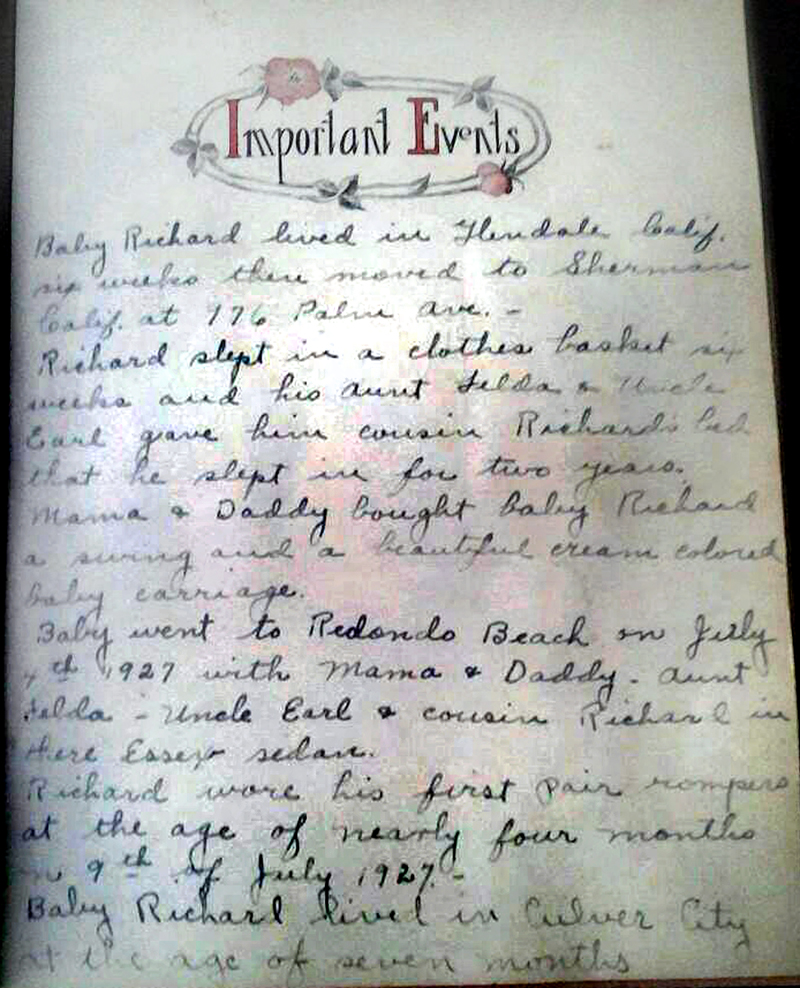 Important Events
Baby Richard lived in Glendale Calif.
six weeks then moved to Sherman
Calif. at 976 Palm Ave. -
Richard slept in a clothes basket six
weeks and his aunt Zelda & Uncle
Earl gave him cousin Richard's bed
that he slept in for two years.
Mama & Daddy bought baby Richard
a swing and a beautiful cream colored
baby carriage.
Baby went to Redondo Beach on July
4th 1927 with Mama & Daddy - aunt
Zelda - Uncle Earl & cousin Richard in
there Essex sedan.
Richard wore his first pair rompers
at the age of nearly four months
on 9th of July 1927. -
Baby Richard lived in Culver City
at the age of seven months